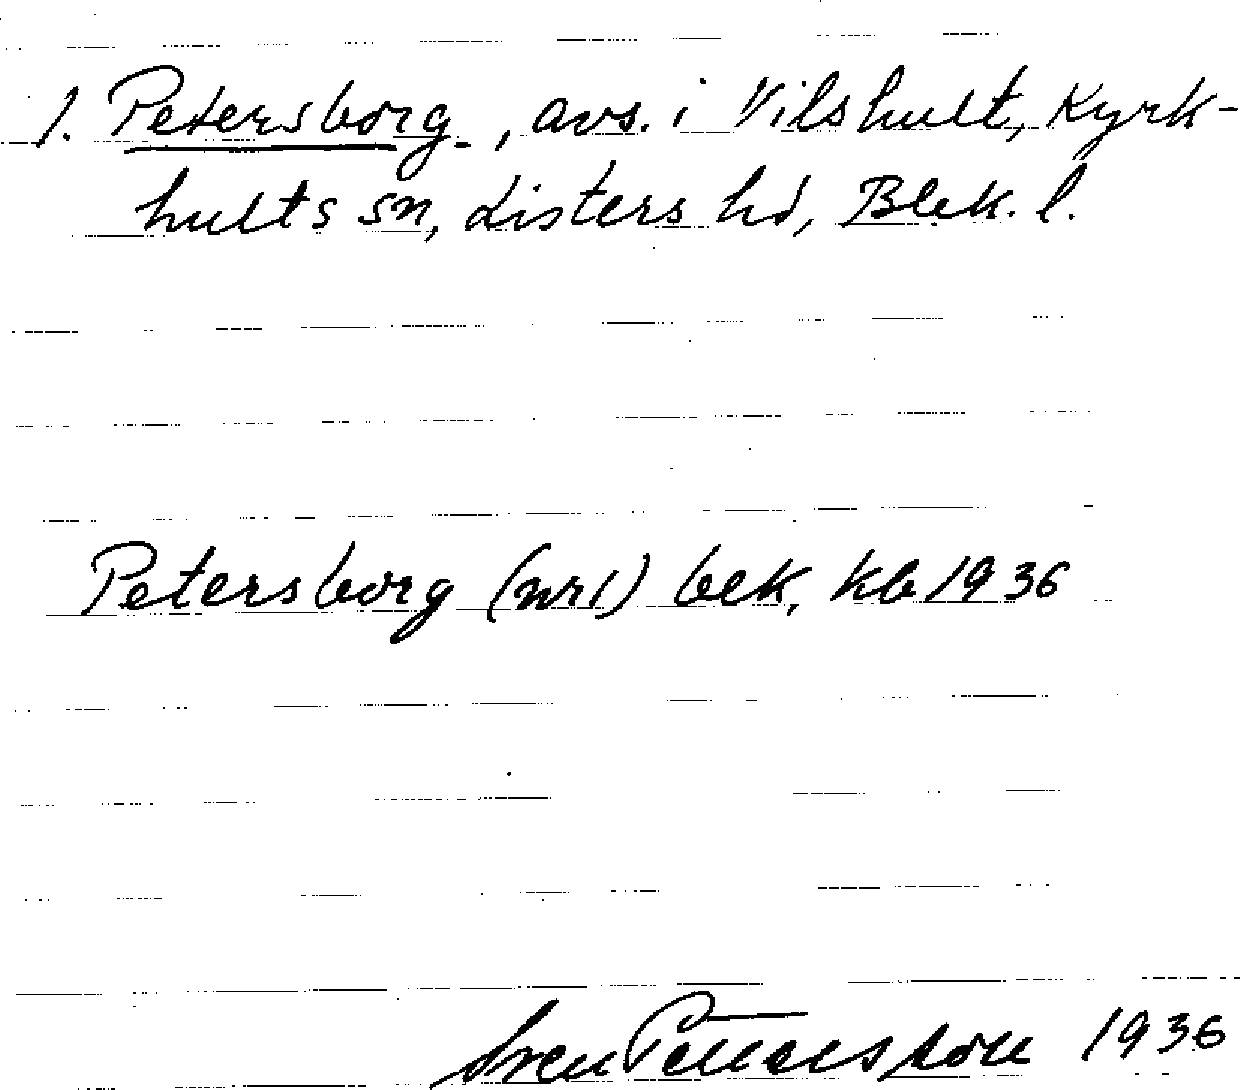 1. Petersborg, avs. i Vilshult, Kyrk-
hults sn, Listers hd, Blek. l.
Petersborg (nr 1) bek, kb 1936
Sven Petersson 1936